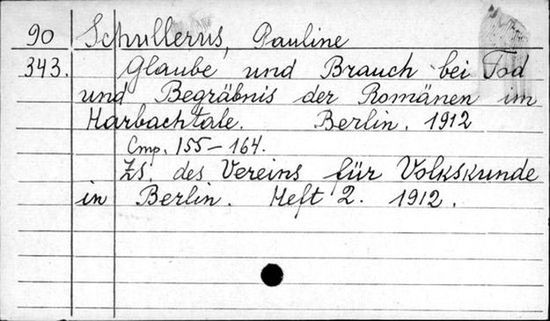 90 Schullerus, Pauline
343. Glaube und Brauch bei Tod
und Begräbnis der Romänen im
Harbachtale. Berlin. 1912
Стр. 155-164.
Zs. des Vereins für Volkskunde
in Berlin. Heft 2. 1912.